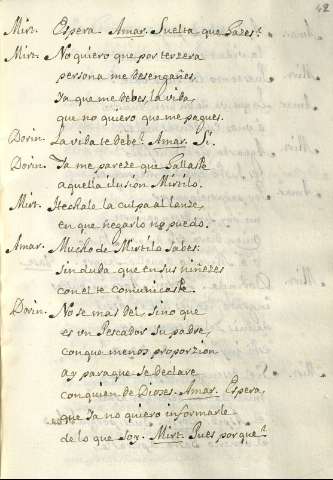 42
Mir. Espera. Amar. Suelta que hazes?
Mirt. No quiero que por terzera
persona me desengañes,
Ya que me debes la vida,
que no quiero que me pagues.
Dorin. La vida te debe? Amar. Si.
Dorin. Ya me pareze que hallaste
aquella ilusion Mirtilo.
Mirt. Hechale la culpa al lanze,
en que negarlo no puedo.
Amar. Mucho de Mirtilo sabes:
sin duda que en sus niñezes
con el te comunicaste.
Dorin. No se mas del, sino que
es un Pescador su padre,
conque menos proporzion
ay para que se declare
con quien de Dioses. Amar. Espera,
que Ya no quiero informarle
de lo que soy. Mirt. Pues porque?